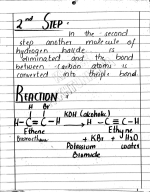 2nd STEP:
in the second
step another molecule of
hydrogen halide is
eliminated and the bond
between carbon atoms is
converted into triple bond.
REACTION:
H Br
H-C=C-H KOH (alcoholic) → H-C≡C-H
Ethene Ethyne
Bromoethene + KBr + H2O
Potassium water
Bromide